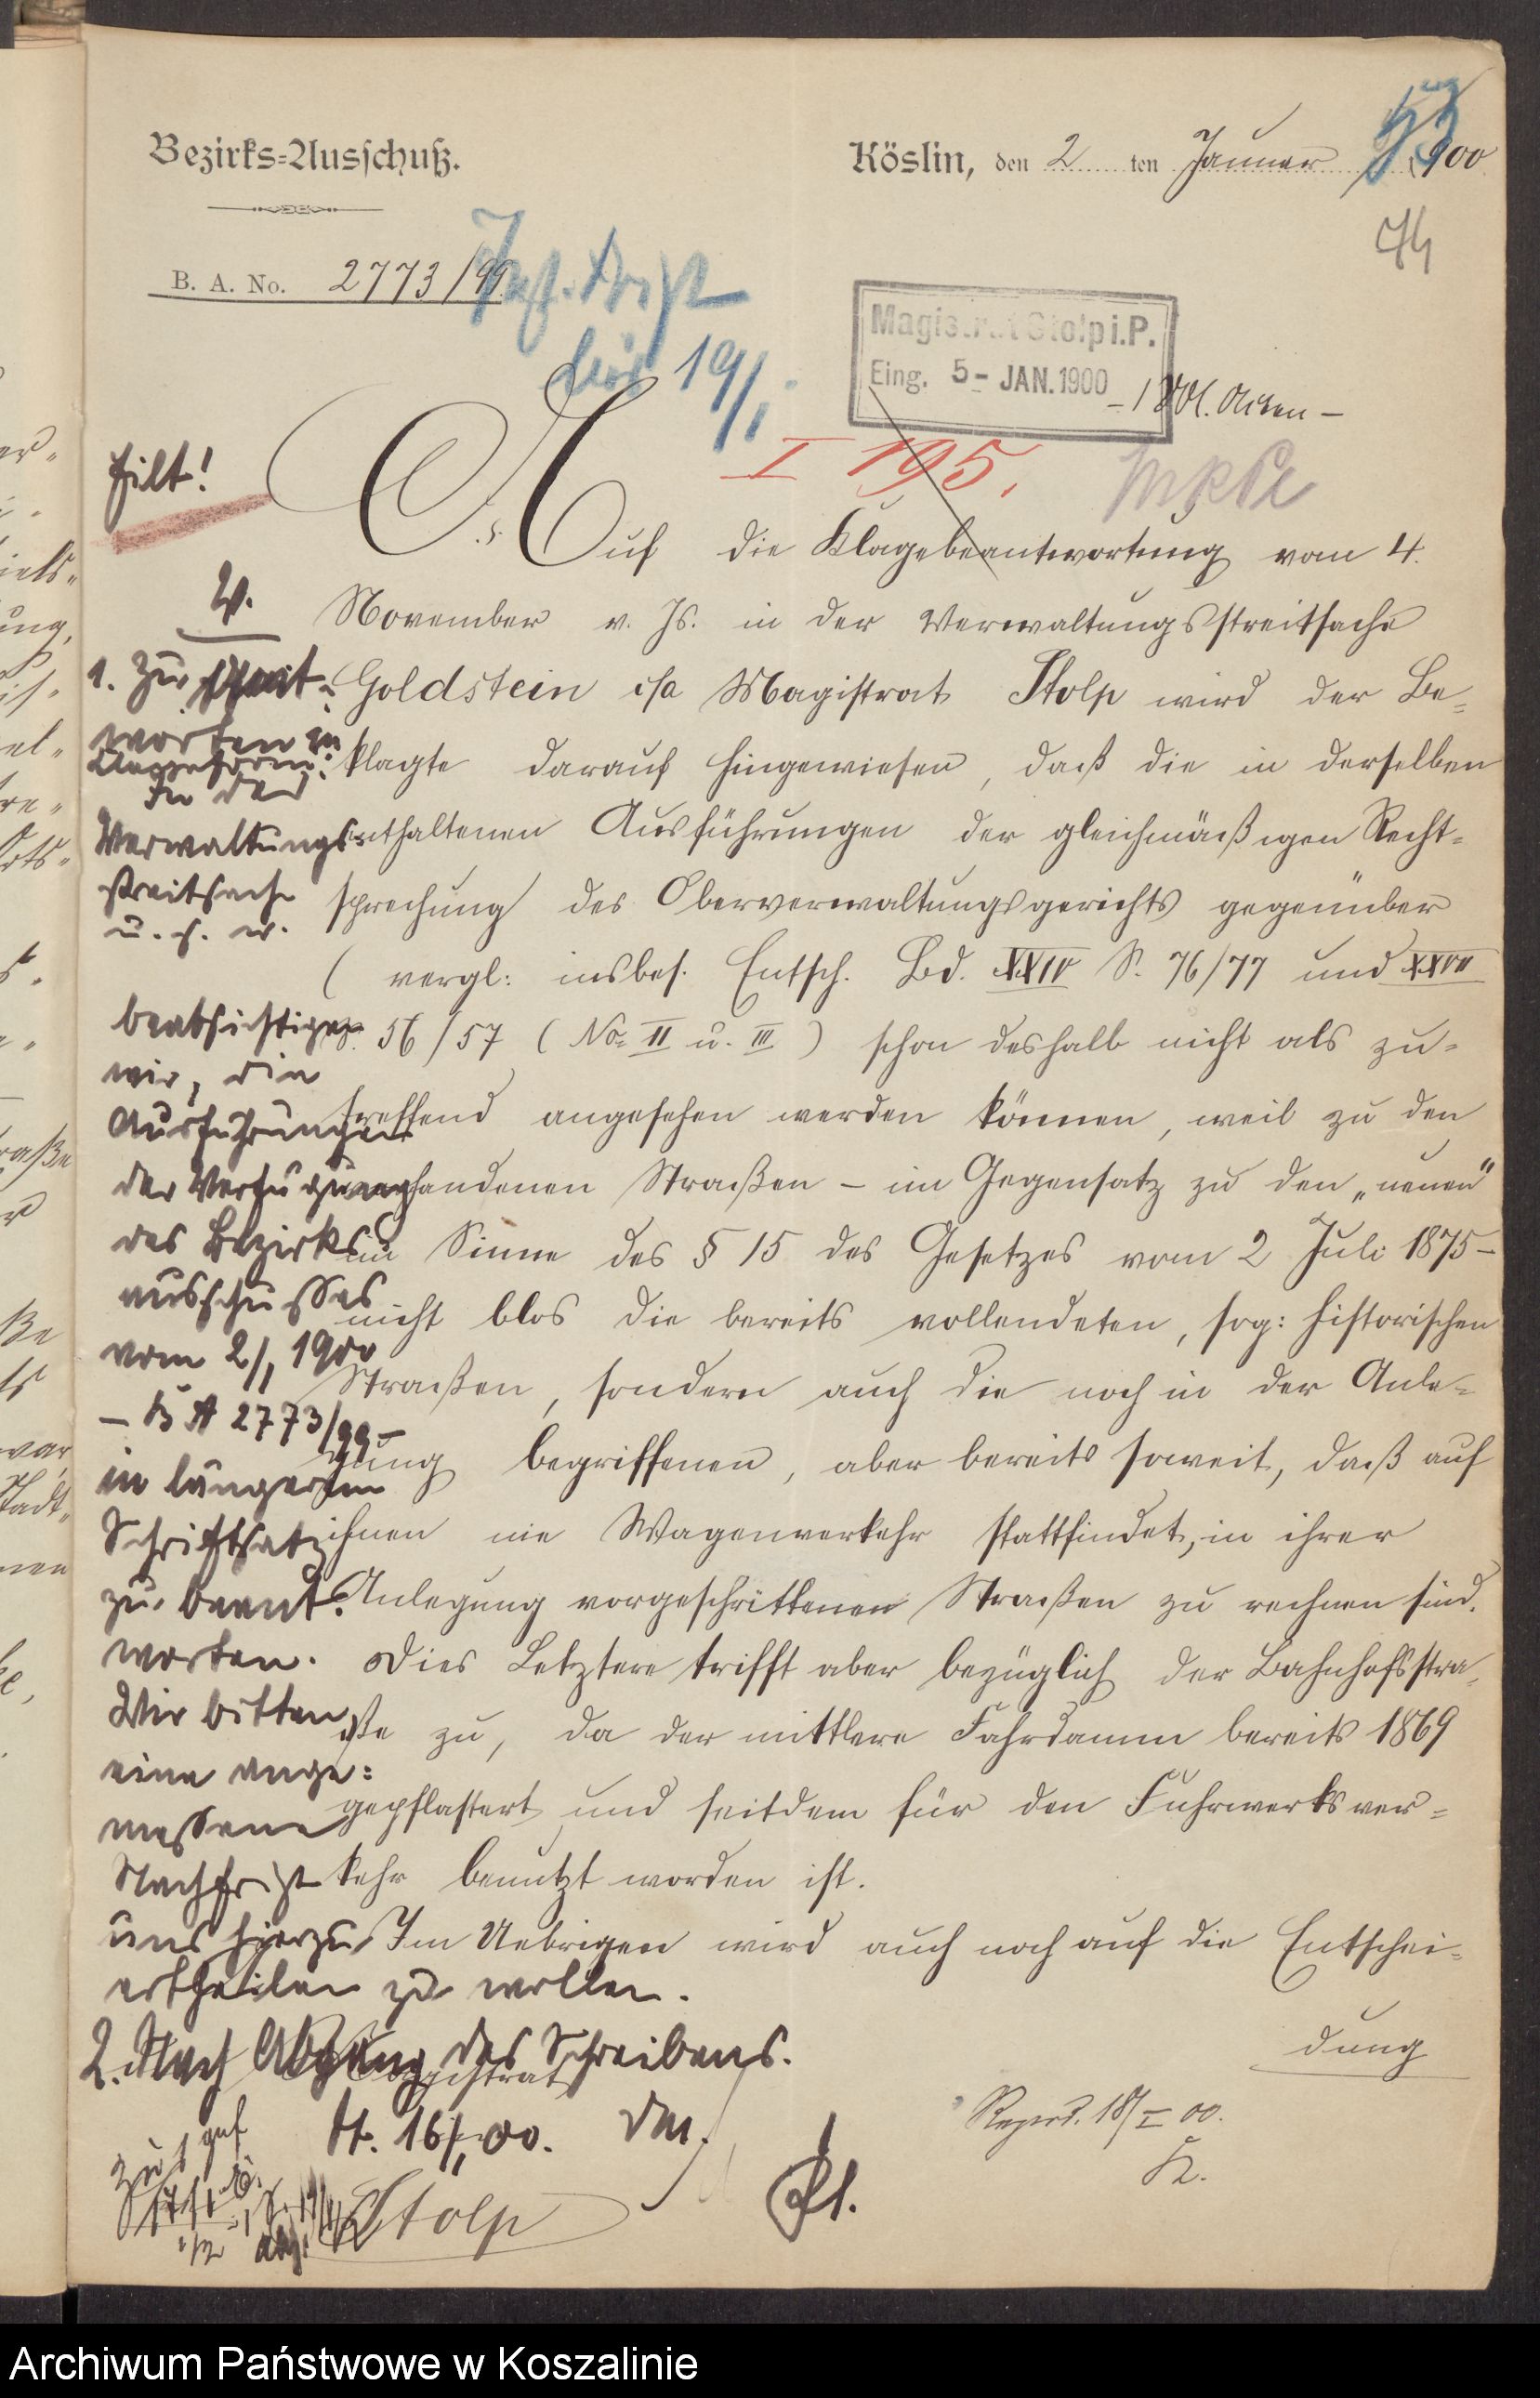 Bezirks-Ausschuß.
Köslin, den 2 ten Januar 1900
53
74
B. A. No. 2773/99.
19/I.
Magistrat Stolp i. P.
Eing. 5- JAN. 1900
- 1 Vol. Akten -
I 195.
Eilt!
Auf die Klagebeantwortung vom 4.
November v. Js. in der Verwaltungsstreitsache
Goldstein c/a Magistrat Stolp wird der Be-
klagte darauf hingewiesen, daß die in derselben
enthaltenen Ausführungen der gleichmäßigen Recht-
sprechung des Oberverwaltungsgerichts gegenüber
( vergl: insbes. Entsch. Bd. XXIV S. 76/77 und XXVII
S. 56/57 (No= II u. III) schon deshalb nicht als zu-
treffend angesehen werden können, weil zu den
vorhandenen Straßen – im Gegensatz zu den „neuen"
im Sinne des § 15 des Gesetzes vom 2 Juli 1875 –
nicht blos die bereits vollendeten, sog: historischen
Straßen, sondern auch die noch in der Anle-
gung begriffenen, aber bereits soweit, daß auf
ihnen ein Wagenverkehr stattfindet, in ihrer
Anlegung vorgeschrittenen Straßen zu rechnen sind.
Dies Letztere trifft aber bezüglich der Bahnhofsstra-
ße zu, da der mittlere Fahrdamm bereits 1869
gepflastert und seitdem für den Fuhrwerksver-
kehr benutzt worden ist.
Im Uebrigen wird auch noch auf die Entschei-
dung
Magistrat
Stolp
V.
1. Zu
worten in
In der
Verwaltungs
streitsache
u. s. w.
beabsichtigen
wir, die
Ausführungen
der Verfügung
des Bezirks
ausschusses
vom 2/1 1900
– B A 2773/99 –
in längerem
Schriftsatz
zu beant-
worten.
Wir bitten,
eine ange-
messene
Nachfrist
uns hierzu
ertheilen zu wollen.
2. Nach Abgang des Schreibens.
St. 16/1 00. Der
Reprod. 18/I 00.
K.